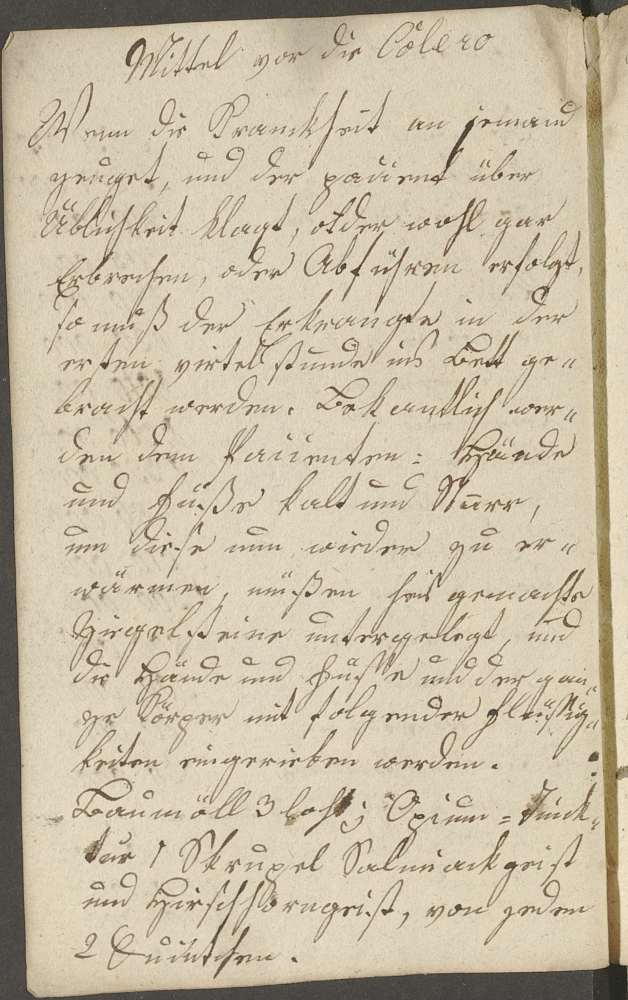 Mittel vor die Colera
Wenn die Kranckheit an jemand
zeuget, und der pacient über
Üblichkeit klagt, oder wohl gar
Erbrechen, oder Abführen erfolgt,
so muß der Erkrangte in der
ersten virtel stunde ins Bett ge=
bracht werden. Bekantlich wer=
den dem Pacienten: Hände
und Füße kalt und Starr,
um diese nun wieder zu er=
wärmen, müßen heis gemachte
Ziegelsteine untergelegt, und
die Hände und Füsse und der gan
ze Körper mit folgender Flüssig=
keiten eingerieben werden.
Baumöll 3 loht; Opium=Tinck=
tur 1 Skrupel Salmiackgeist
und Hirschhorngeist, von jeden
2 Quintchen.